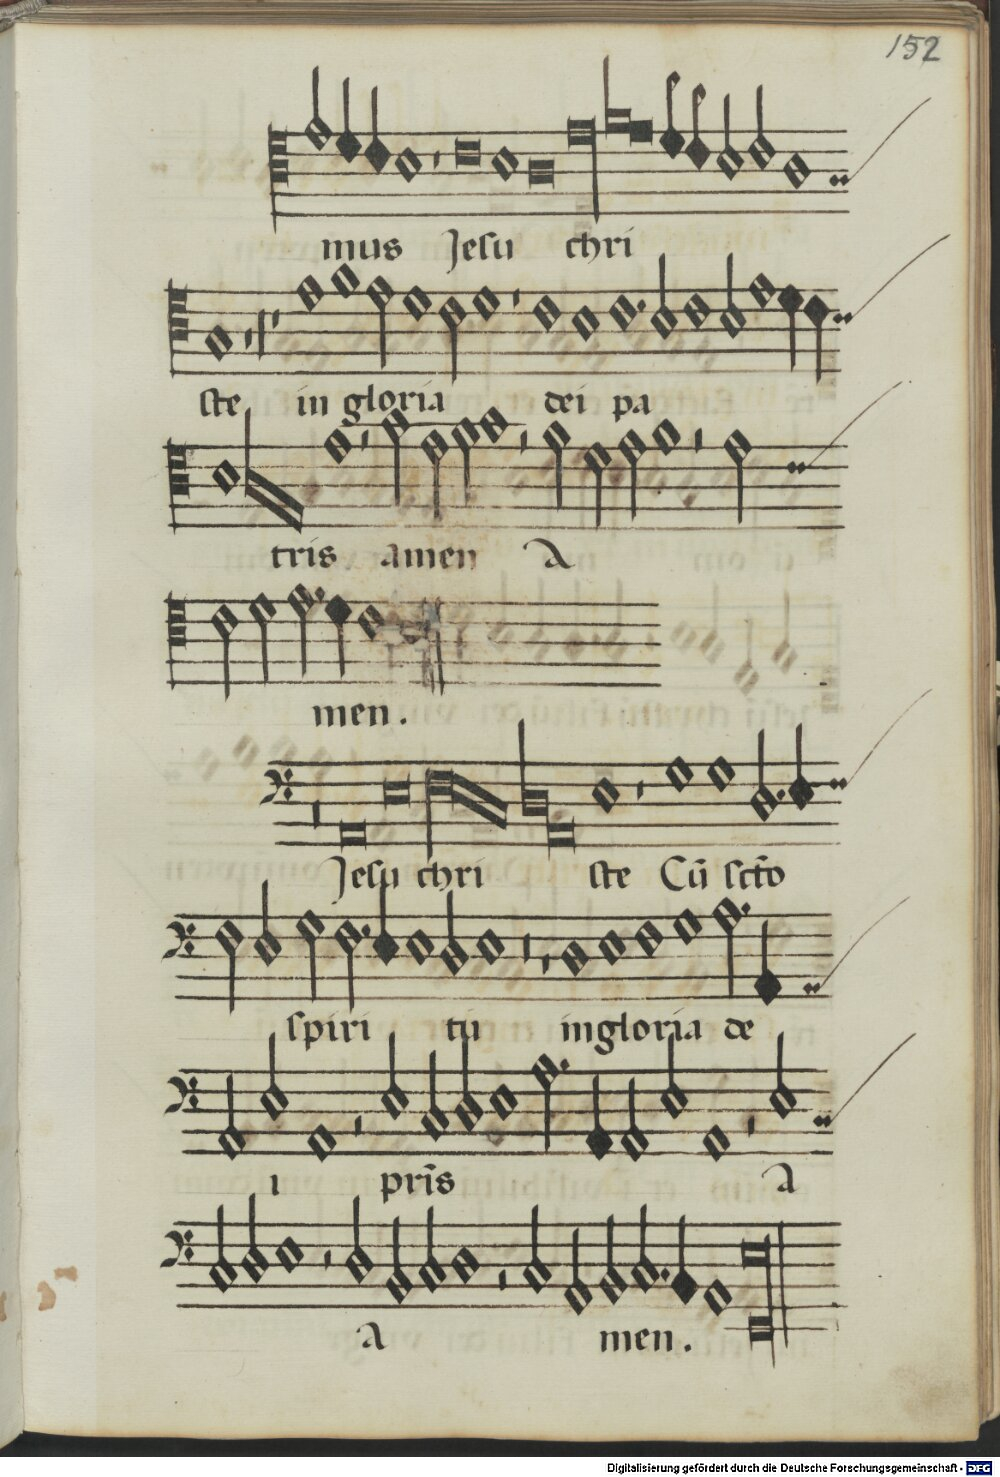 152
mus Jesu chri
ste in gloria dei pa
tris amen A
men.
Jesu chri ste Cū sctō
spiri tu in gloria de
i pr̄is A
A men.
Digitalisierung gefördert durch die Deutsche Forschungsgemeinschaft - DFG